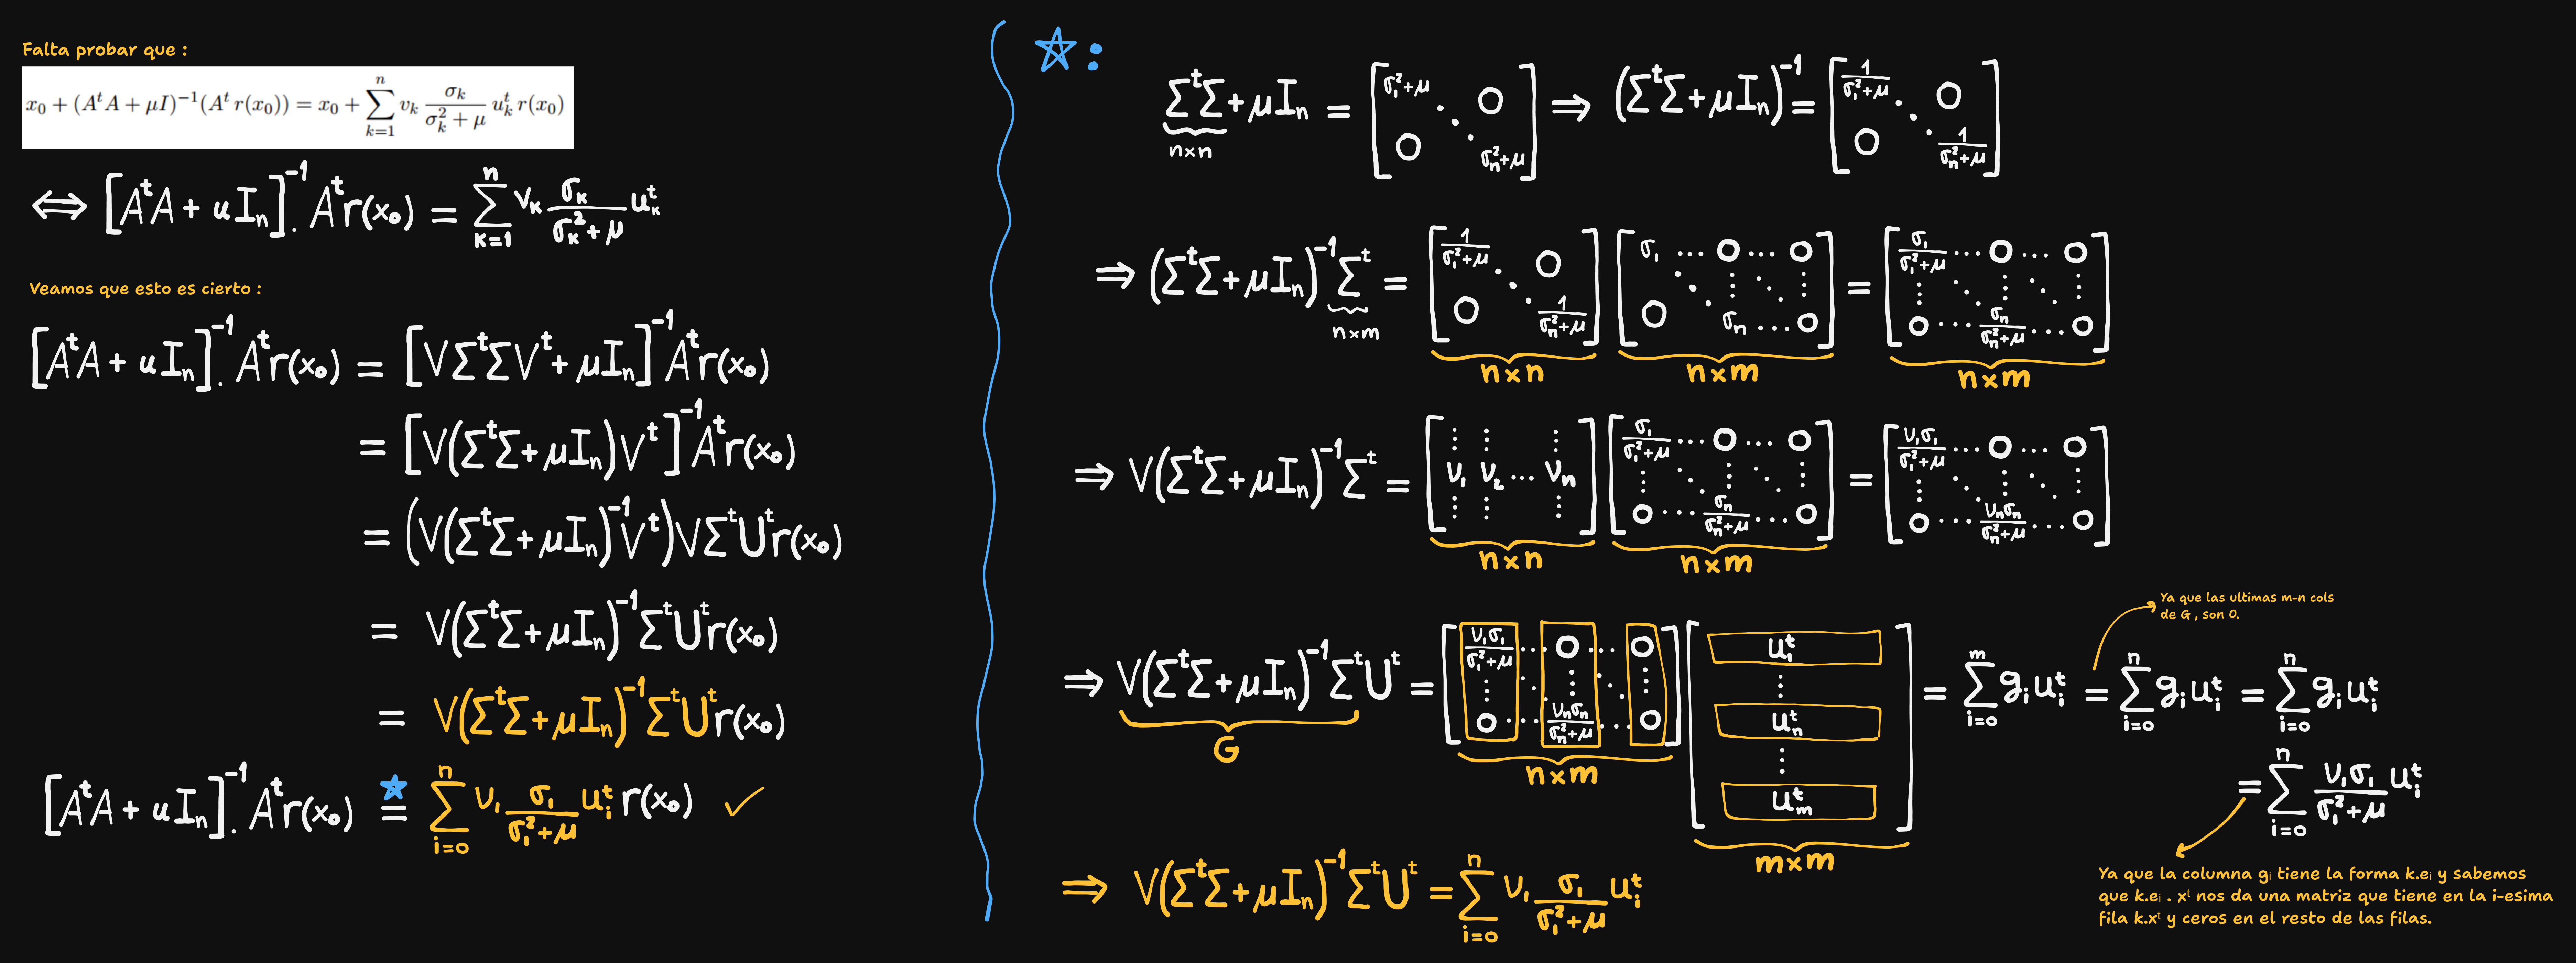 Falta probar que :
x₀ + (AᵗA + μI)⁻¹(Aᵗ r(x₀)) = x₀ + ∑ₖ₌₁ⁿ vₖ σₖ/(σₖ² + μ) uₖᵗ r(x₀)
⟺ [AᵗA + uIₙ]⁻¹. Aᵗr(x₀) = ∑ₖ₌₁ⁿ vₖ σₖ/(σₖ² + μ) uₖᵗ
Veamos que esto es cierto :
[AᵗA + uIₙ]⁻¹. Aᵗr(x₀) = [VΣᵗΣVᵗ + μIₙ]⁻¹Aᵗr(x₀)
= [V(ΣᵗΣ + μIₙ)Vᵗ]⁻¹Aᵗr(x₀)
= (V(ΣᵗΣ + μIₙ)⁻¹Vᵗ)VΣᵗUᵗr(x₀)
= V(ΣᵗΣ + μIₙ)⁻¹ΣᵗUᵗr(x₀)
= V(ΣᵗΣ + μIₙ)⁻¹ΣᵗUᵗr(x₀)
[AᵗA + uIₙ]⁻¹. Aᵗr(x₀) =☆ ∑ᵢ₌₀ⁿ v₁ σ₁/(σ₁² + μ) uᵢᵗ r(x₀) ✓
☆ :
ΣᵗΣ + μIₙ = [σ₁²+μ ⋱ 0 0 σₙ²+μ] ⇒ (ΣᵗΣ + μIₙ)⁻¹ = [1/(σ₁²+μ) ⋱ 0 0 1/(σₙ²+μ)]
n×n
⇒ (ΣᵗΣ + μIₙ)⁻¹Σᵗ = [1/(σ₁²+μ) ⋱ 0 0 1/(σₙ²+μ)] [σ₁ ... 0 ... 0 ⋱ ⋮ ⋱ ⋮ 0 σₙ ... 0] = [σ₁/(σ₁²+μ) ... 0 ... 0 ⋮ ⋱ ⋮ ⋱ ⋮ 0 ... σₙ/(σₙ²+μ) ... 0]
n×m n×n n×m n×m
⇒ V(ΣᵗΣ + μIₙ)⁻¹Σᵗ = [⋮ ⋮ ⋮ v₁ v₂ ... vₙ ⋮ ⋮ ⋮] [σ₁/(σ₁²+μ) ... 0 ... 0 ⋮ ⋱ ⋮ ⋱ ⋮ 0 ... σₙ/(σₙ²+μ) ... 0] = [v₁σ₁/(σ₁²+μ) ... 0 ... 0 ⋮ ⋱ ⋮ ⋱ ⋮ 0 ... vₙσₙ/(σₙ²+μ) ... 0]
n×n n×m
Ya que las ultimas m-n cols
de G , son 0.
⇒ V(ΣᵗΣ + μIₙ)⁻¹ΣᵗUᵗ = [v₁σ₁/(σ₁²+μ) ... 0 ... 0 ⋮ ⋱ ⋮ ⋱ ⋮ 0 ... vₙσₙ/(σₙ²+μ) ... 0] [u₁ᵗ ⋮ uₙᵗ ⋮ uₘᵗ] = ∑ᵢ₌₀ᵐ gᵢuᵢᵗ = ∑ᵢ₌₀ⁿ gᵢuᵢᵗ = ∑ᵢ₌₀ⁿ gᵢuᵢᵗ
G n×m m×m
= ∑ᵢ₌₀ⁿ v₁σ₁/(σ₁²+μ) uᵢᵗ
Ya que la columna gᵢ tiene la forma k.eᵢ y sabemos
que k.eᵢ . xᵗ nos da una matriz que tiene en la i-esima
fila k.xᵗ y ceros en el resto de las filas.
⇒ V(ΣᵗΣ + μIₙ)⁻¹ΣᵗUᵗ = ∑ᵢ₌₀ⁿ v₁ σ₁/(σ₁² + μ) uᵢᵗ